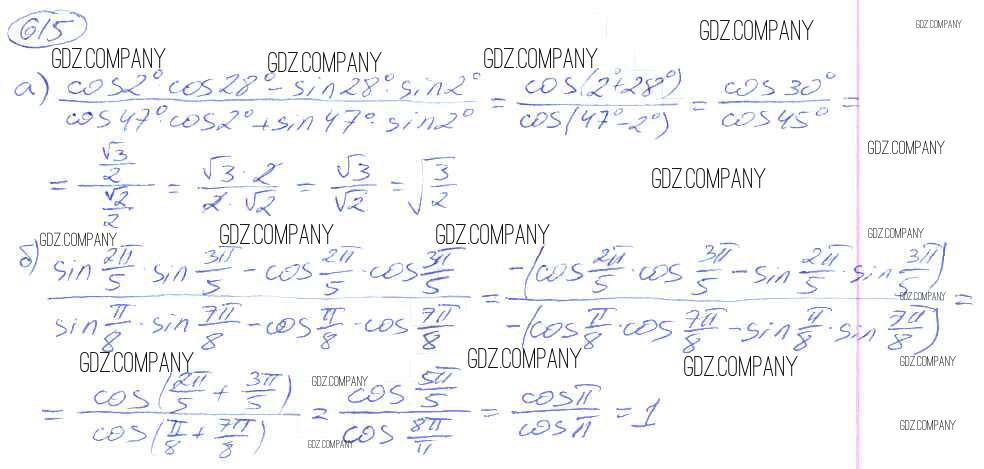 615
GDZ.COMPANY GDZ.COMPANY GDZ.COMPANY GDZ.COMPANY GDZ.COMPANY
а) (cos2°·cos28° − sin28°·sin2°)/(cos47°·cos2° + sin47°·sin2°) = cos(2°+28°)/cos(47°−2°) = cos30°/cos45° =
GDZ.COMPANY GDZ.COMPANY
= (√3/2)/(√2/2) = (√3·2)/(2·√2) = √3/√2 = √(3/2)
GDZ.COMPANY GDZ.COMPANY GDZ.COMPANY GDZ.COMPANY
б) (sin 2π/5 · sin 3π/5 − cos 2π/5 · cos 3π/5)/(sin π/8 · sin 7π/8 − cos π/8 · cos 7π/8) = −(cos 2π/5 · cos 3π/5 − sin 2π/5 · sin 3π/5)/−(cos π/8 · cos 7π/8 − sin π/8 · sin 7π/8) =
GDZ.COMPANY
GDZ.COMPANY GDZ.COMPANY GDZ.COMPANY GDZ.COMPANY
GDZ.COMPANY
= cos(2π/5 + 3π/5)/cos(π/8 + 7π/8) = cos 5π/5 / cos 8π/π = cosπ/cosπ = 1
GDZ.COMPANY GDZ.COMPANY